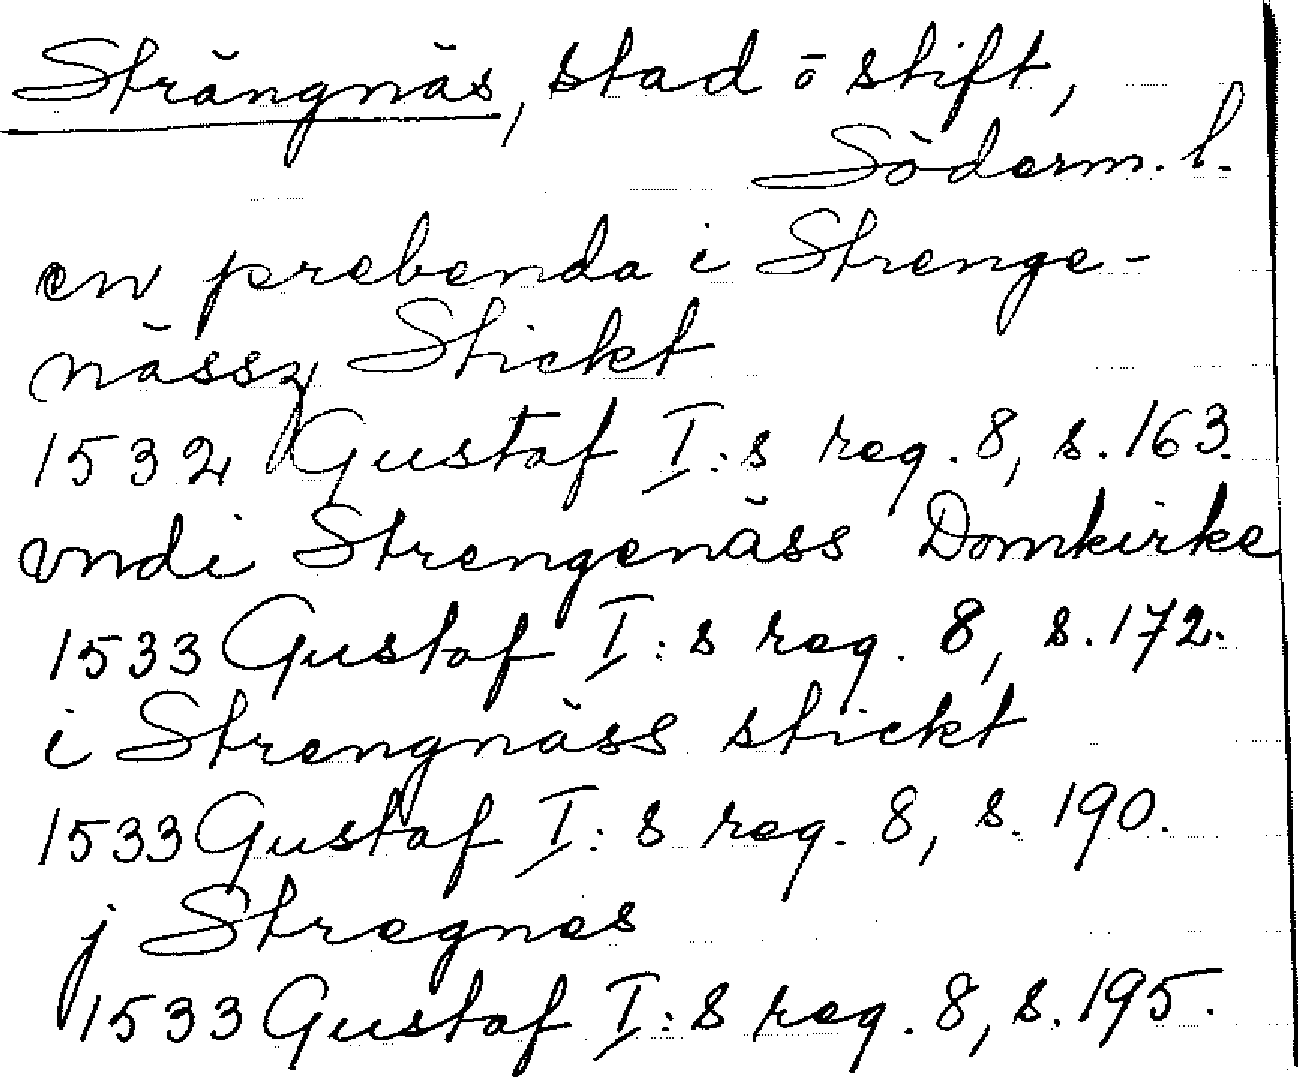 Strängnäs, stad o stift,
Söderm. l.
en prebenda i Strenge-
nässz Stickt
1532 Gustaf I:s reg. 8, s. 163.
vndi Strengenäss Domkirke
1533 Gustaf I:s reg. 8, s. 172.
i Strengnäss stickt
1533 Gustaf I:s reg. 8, s. 190.
j Stregnes
1533 Gustaf I:s reg. 8, s. 195.